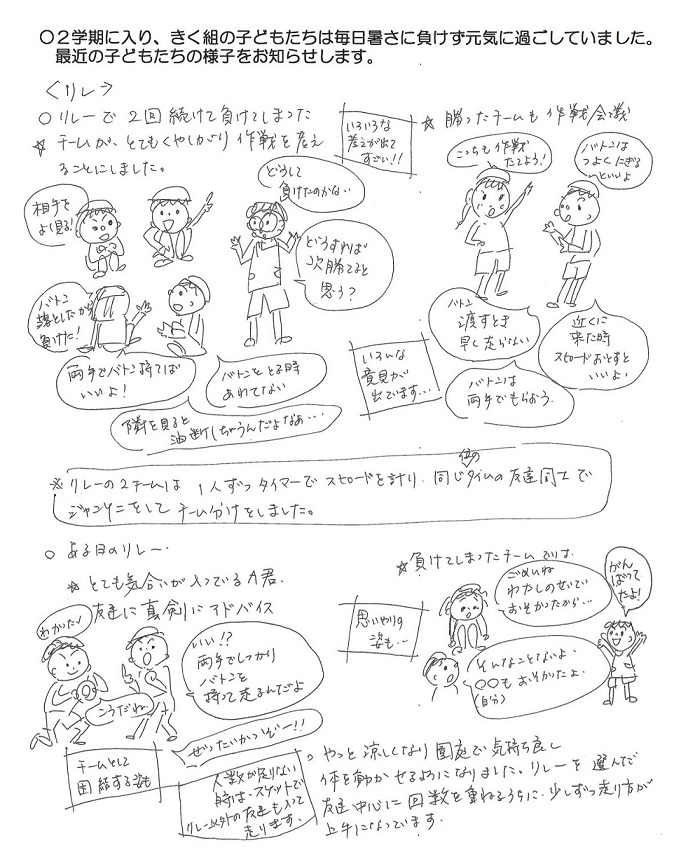 ○２学期に入り、きく組の子どもたちは毎日暑さに負けず元気に過ごしていました。
最近の子どもたちの様子をお知らせします。
〈リレー〉
○ リレーで 2回 続けて負けてしまった
☆ チームが、とてもくやしがり 作戦を考え
ることにしました。
いろいろな
差えが出て
すごい!!
☆ 勝ったチームも 作戦会議
こっちも作戦
たてよう!
バトンは
つよくにぎる
といいよ
相手を
よく見る!
どうして
負けたのかな…
どうすれば
次勝てると
思う?
バトン
落としたから
負けた!
両手でバトン持てば
いいよ!
バトンをとる時
あわてない
隣を見ると
油断しちゃうんだよなぁ…
いろんな
意見が
出ています…
バトン
渡すとき
早く走らない
近くに
来た時
スピードおとすと
いいよ
バトンは
両手でもらおう.
※ リレーの2チームは 1人ずつタイマーで スピードを計り、同じ位のタイムの友達同士で
ジャンケンをして チーム分けをしました。
○ ある日のリレー.
☆ とても気合いが入っているA君.
友達に真剣にアドバイス
わかった!
こうだね
いい!?
両手でしっかり
バトンを
持って走るんだよ
ぜったいかつぞー!!
チームとして
団結する姿も
人数が足りない
時は、スケットで
リレー以外の友達も入って
走ります.
☆ 負けてしまったチームでは
思いやりの
姿も…
ごめんね
わたしのせいで
おそかったから…
がん
ばって
たよ!
そんなことないよ.
○○もおそかったよ.
(自分)
○ やっと涼しくなり 園庭で気持ち良く
体を動かせるようになりました。リレーを選んだ
友達中心に回数を重ねるうちに、少しずつ走り方が
上手になっています.